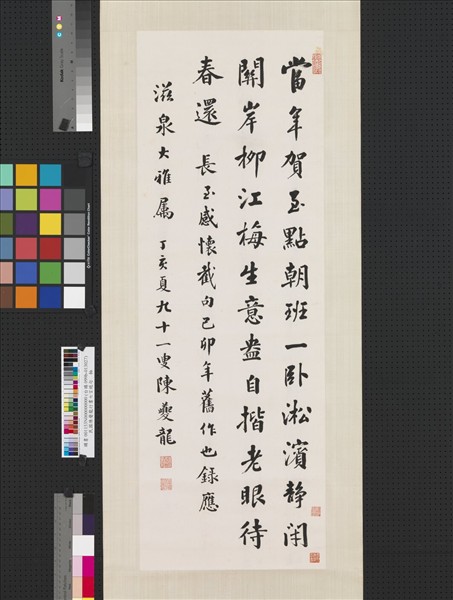 當年賀至點朝班一卧淞濱静閑
關岸柳江梅生意盎自揩老眼待
春還 長至感懷截句己卯年舊作也録應
滋泉大雅属 丁亥夏九十一叟陳夔龍